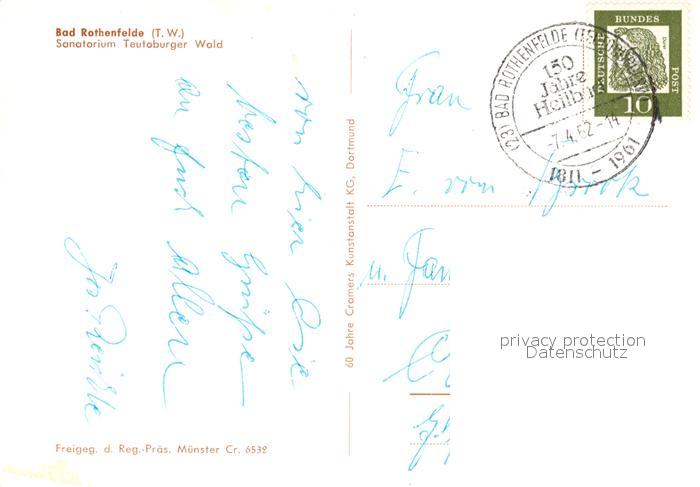 Bad Rothenfelde (T. W.)
Sanatorium Teutoburger Wald
von hier die
besten Grüße
an Euch Allen
60 Jahre Cramers Kunstanstalt KG, Dortmund
Freigeg. d. Reg.-Präs. Münster Cr. 6532
(23) BAD ROTHENFELDE
150
Jahre
Heilb
-7.4.62-14
1811 - 1961
DEUTSCHE BUNDES POST
Dürer
10
Frau
E. vom
u. Fam
privacy protection
Datenschutz